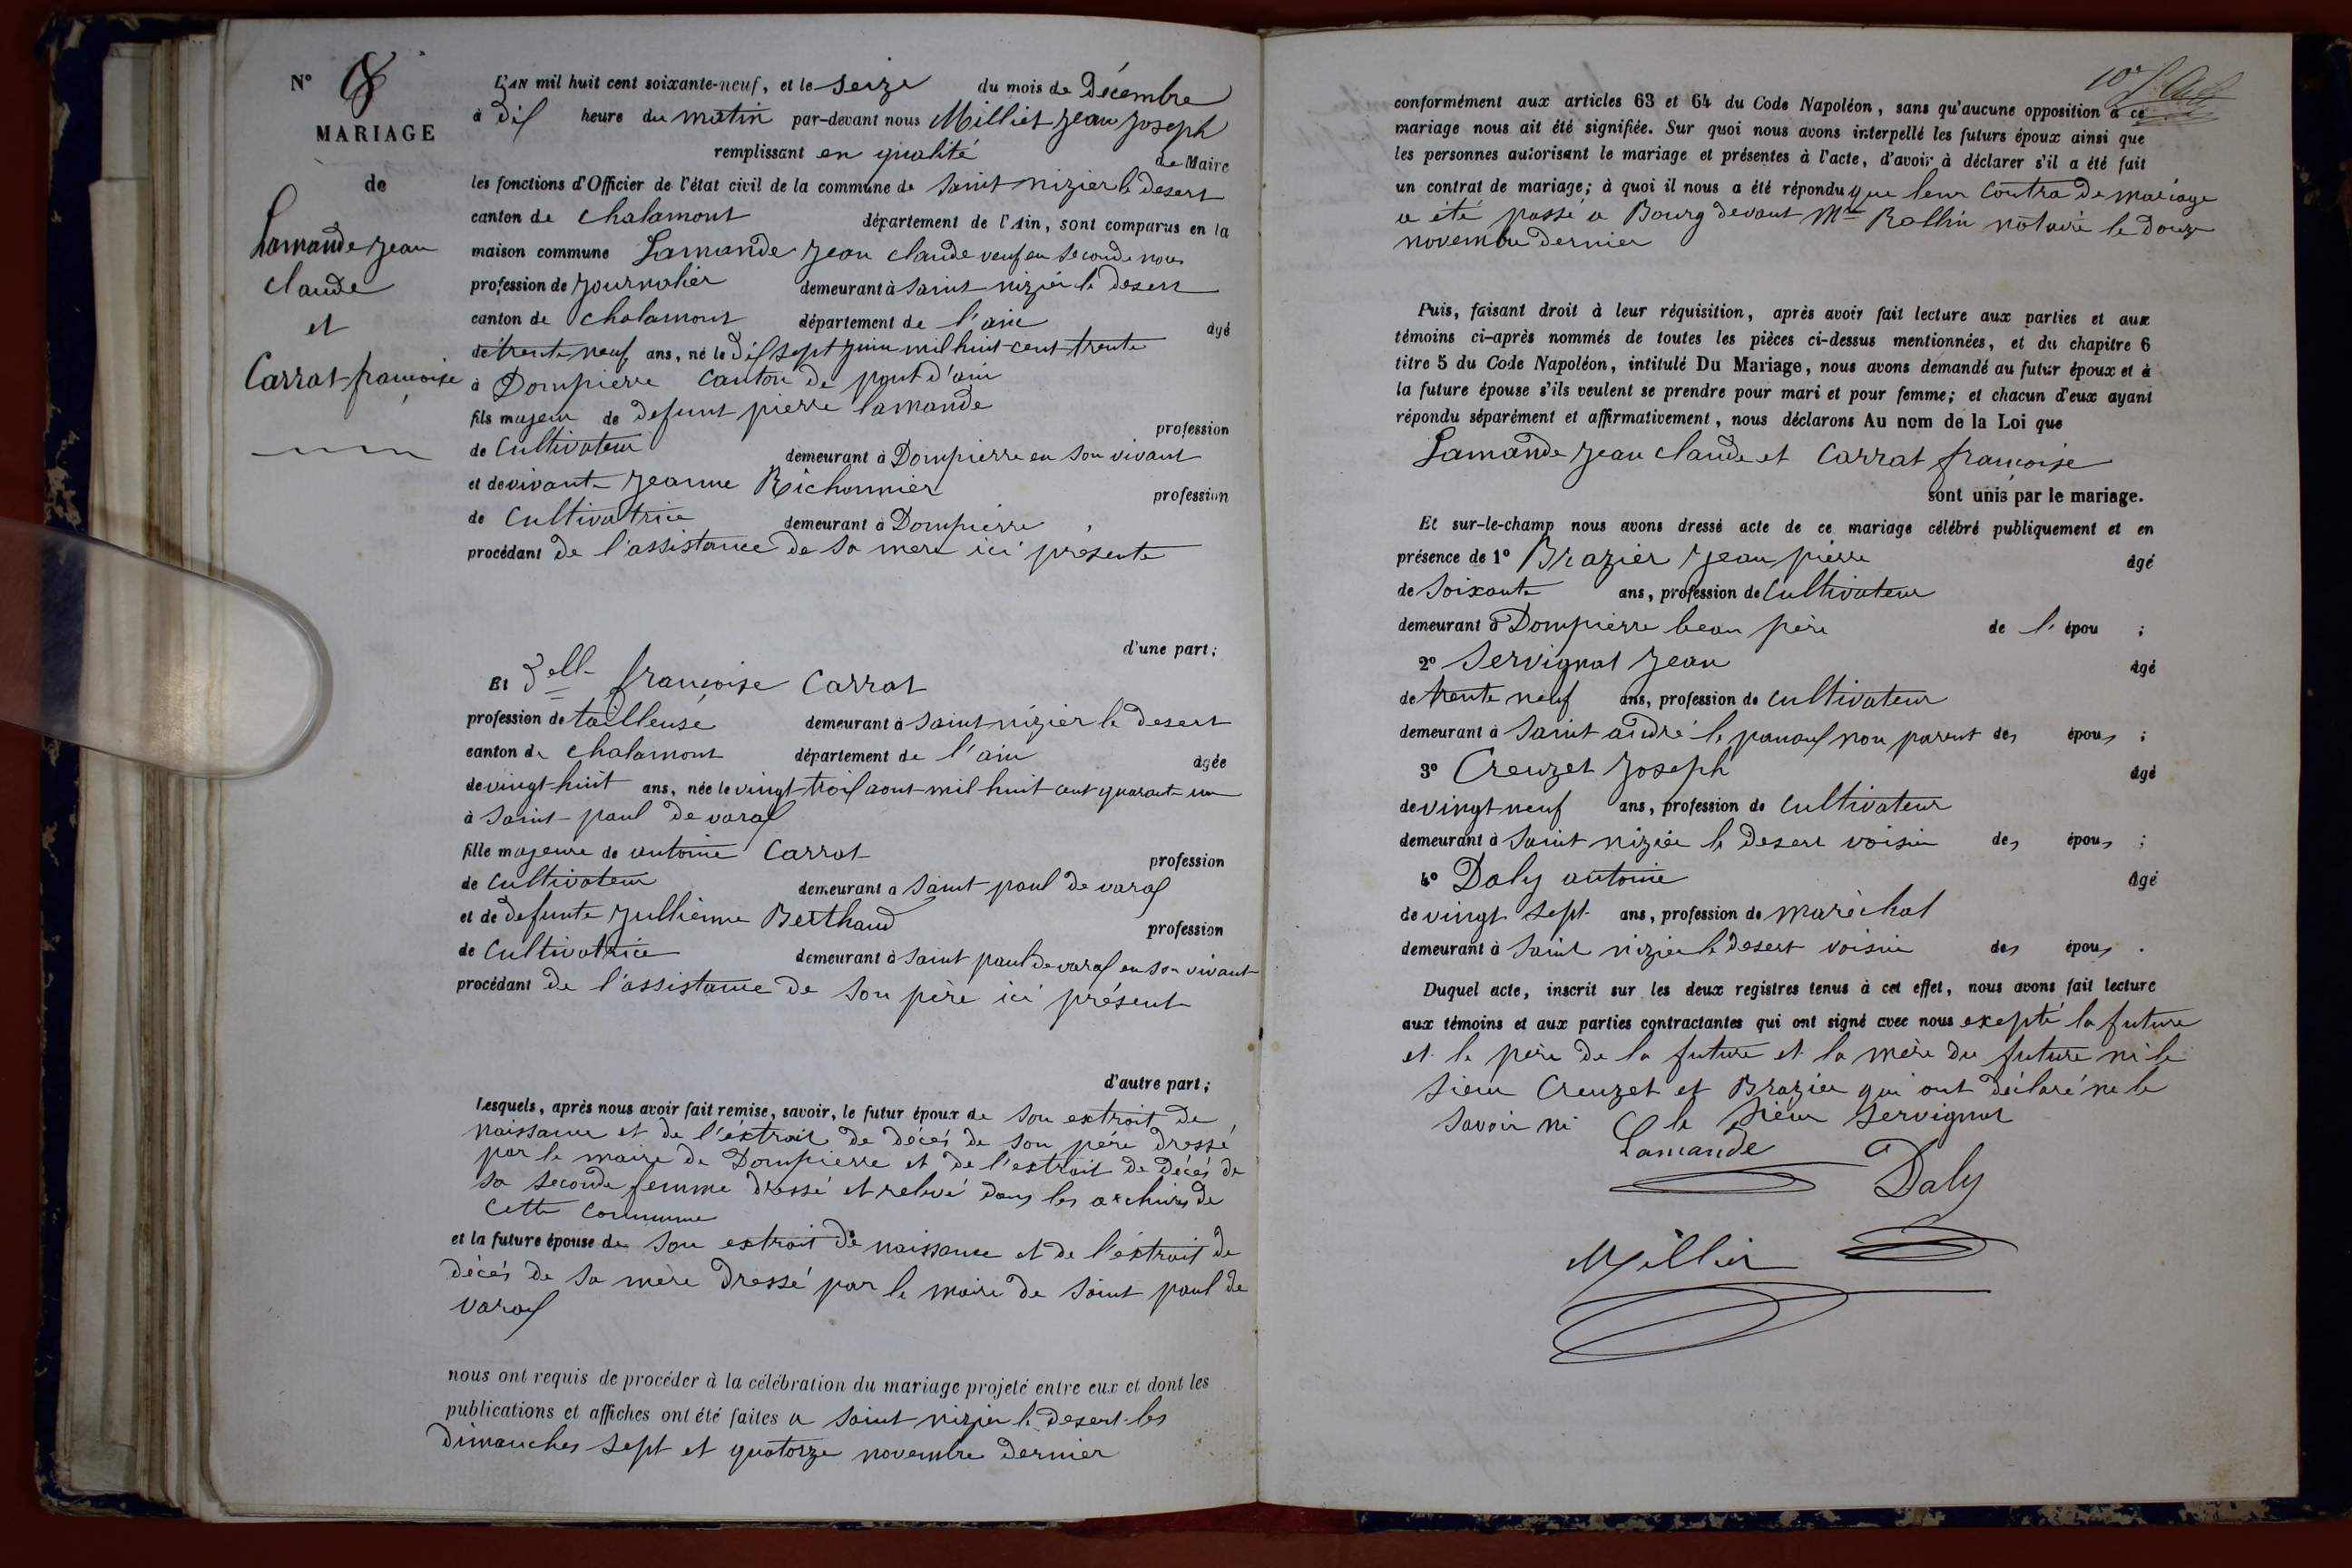 N° 8
MARIAGE
de
Lamande Jean
Claude
et
Carrat françoise
L'AN mil huit cent soixante-neuf, et le seize du mois de Décembre
à dix heure du matin par-devant nous Milliet Jean Joseph
remplissant en qualité de Maire
les fonctions d'Officier de l'état civil de la commune de saint nizier le desert
canton de chalamont département de l'Ain, sont comparus en la
maison commune Lamande Jean claude veuf en seconde noce
profession de Journalier demeurant à saint nizier le desert
canton de chalamont département de l'ain âgé
de trente neuf ans, né le dix sept Juin mil huit cent trente
à Dompierre canton de pont d'ain
fils majeur de defunt pierre lamande
profession
de Cultivateur demeurant à Dompierre en son vivant
et de vivante Jeanne Richonnier profession
de Cultivatrice demeurant à Dompierre
procédant de l'assistance de sa mere ici présente
d'une part;
Et Delle françoise Carrat
profession de tailleuse demeurant à saint nizier le desert
canton de chalamont département de l'ain âgée
de vingt huit ans, née le vingt trois aout mil huit cent quarante un
à saint paul de varax
fille majeure de antoine Carrat profession
de Cultivateur demeurant à saint paul de varax
et de defunte Jullienne Berthaud profession
de Cultivatrice demeurant à saint paul de varax en son vivant
procédant de l'assistance de son père ici présent
d'autre part;
Lesquels, après nous avoir fait remise, savoir, le futur époux de son extrait de
naissance et de l'éxtrait de décés de son père dressé
par le maire de Dompierre et de l'extrait de décés de
sa seconde femme dressé et relevé dans les archives de
cette commune
et la future épouse de son extrait de naissance et de l'éxtrait de
décés de sa mère dressé par le maire de saint paul de
varax
nous ont requis de procéder à la célébration du mariage projeté entre eux et dont les
publications et affiches ont été faites a saint nizier le desert les
dimanches sept et quatorze novembre dernier
conformément aux articles 63 et 64 du Code Napoléon, sans qu'aucune opposition à ce
mariage nous ait été signifiée. Sur quoi nous avons interpellé les futurs époux ainsi que
les personnes autorisant le mariage et présentes à l'acte, d'avoir à déclarer s'il a été fait
un contrat de mariage; à quoi il nous a été répondu que leur contra de mariage
a été passé a Bourg devant Me Rollin notaire le douze
novembre dernier
Puis, faisant droit à leur réquisition, après avoir fait lecture aux parties et aux
témoins ci-après nommés de toutes les pièces ci-dessus mentionnées, et du chapitre 6
titre 5 du Code Napoléon, intitulé Du Mariage, nous avons demandé au futur époux et à
la future épouse s'ils veulent se prendre pour mari et pour femme; et chacun d'eux ayant
répondu séparément et affirmativement, nous déclarons Au nom de la Loi que
Lamande Jean claude et Carrat françoise
sont unis par le mariage.
Et sur-le-champ nous avons dressé acte de ce mariage célébré publiquement et en
présence de 1° Brazier Jean pierre âgé
de soixante ans, profession de Cultivateur
demeurant à Dompierre beau père de l' épou ;
2° Servignat Jean âgé
de trente neuf ans, profession de Cultivateur
demeurant à saint andré le panoux non parent des épous ;
3° Creuzet Joseph âgé
de vingt neuf ans, profession de Cultivateur
demeurant à saint nizier le desert voisin des épous ;
4° Daly antoine âgé
de vingt sept ans, profession de maréchal
demeurant à saint nizier le desert voisin des épous .
Duquel acte, inscrit sur les deux registres tenus à cet effet, nous avons fait lecture
aux témoins et aux parties contractantes qui ont signé avec nous excepté la future
et le père de la future et la mère du future ni le
sieur Creuzet et Brazier qui ont déclaré ne le
savoir ni le sieur servignat
Lamande
Daly
Milliet